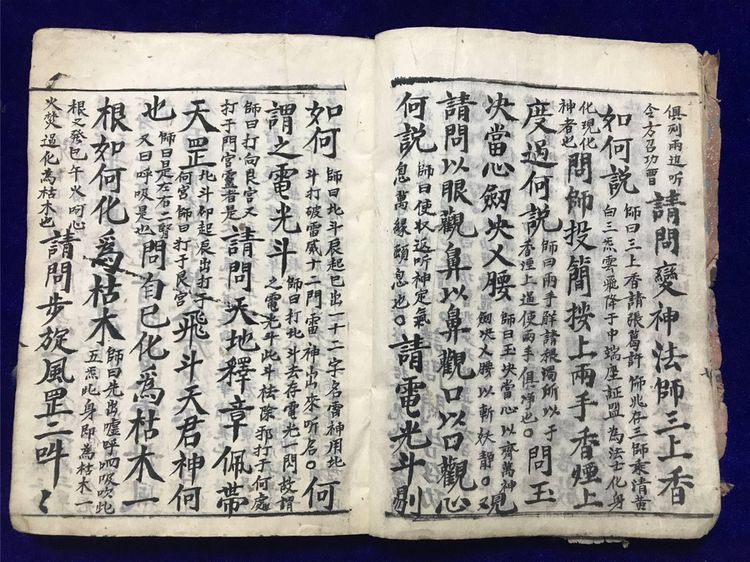 俱列兩边听令方召功曹請問變神法師三上香
如何說師曰三上香請張葛許師兆存三師乘清黃白三炁雲氣降于中端座証盟為法士化身
化現化神者也問師投簡按上兩手香煙上
度過何說師曰兩手鮮請根濁所以于香煙上過使兩手俱煇也問玉
决當心劔决乂腰師曰玉决當心以齊萬神劔决乂腰以斬妖。又見
請問以眼觀鼻以鼻觀口以口觀心
何説師曰使收返听神定氣息萬緣頤息也。請電光斗別
如何師曰北斗辰起巳出一十二字名雷神用北斗打破雷威十二門雷神出來听名。何
謂之電光斗師曰打北斗去存電光一閃故謂之電光斗此斗祛除邪打于何處
師曰打向艮宮又打于門宮霊者是請問天地釋章佩帶
天罡北斗卯起辰出打于何宮師曰打于艮宮飛斗天君神何
也師曰是左右二腎又曰呼吸是也問自已化為枯木一
根如何化為枯木師曰先出噓呼呬吸吹此五炁此身即為枯木一
根又發巳午火呵心火焚過化為枯木也請問步旋風罡二叫〻